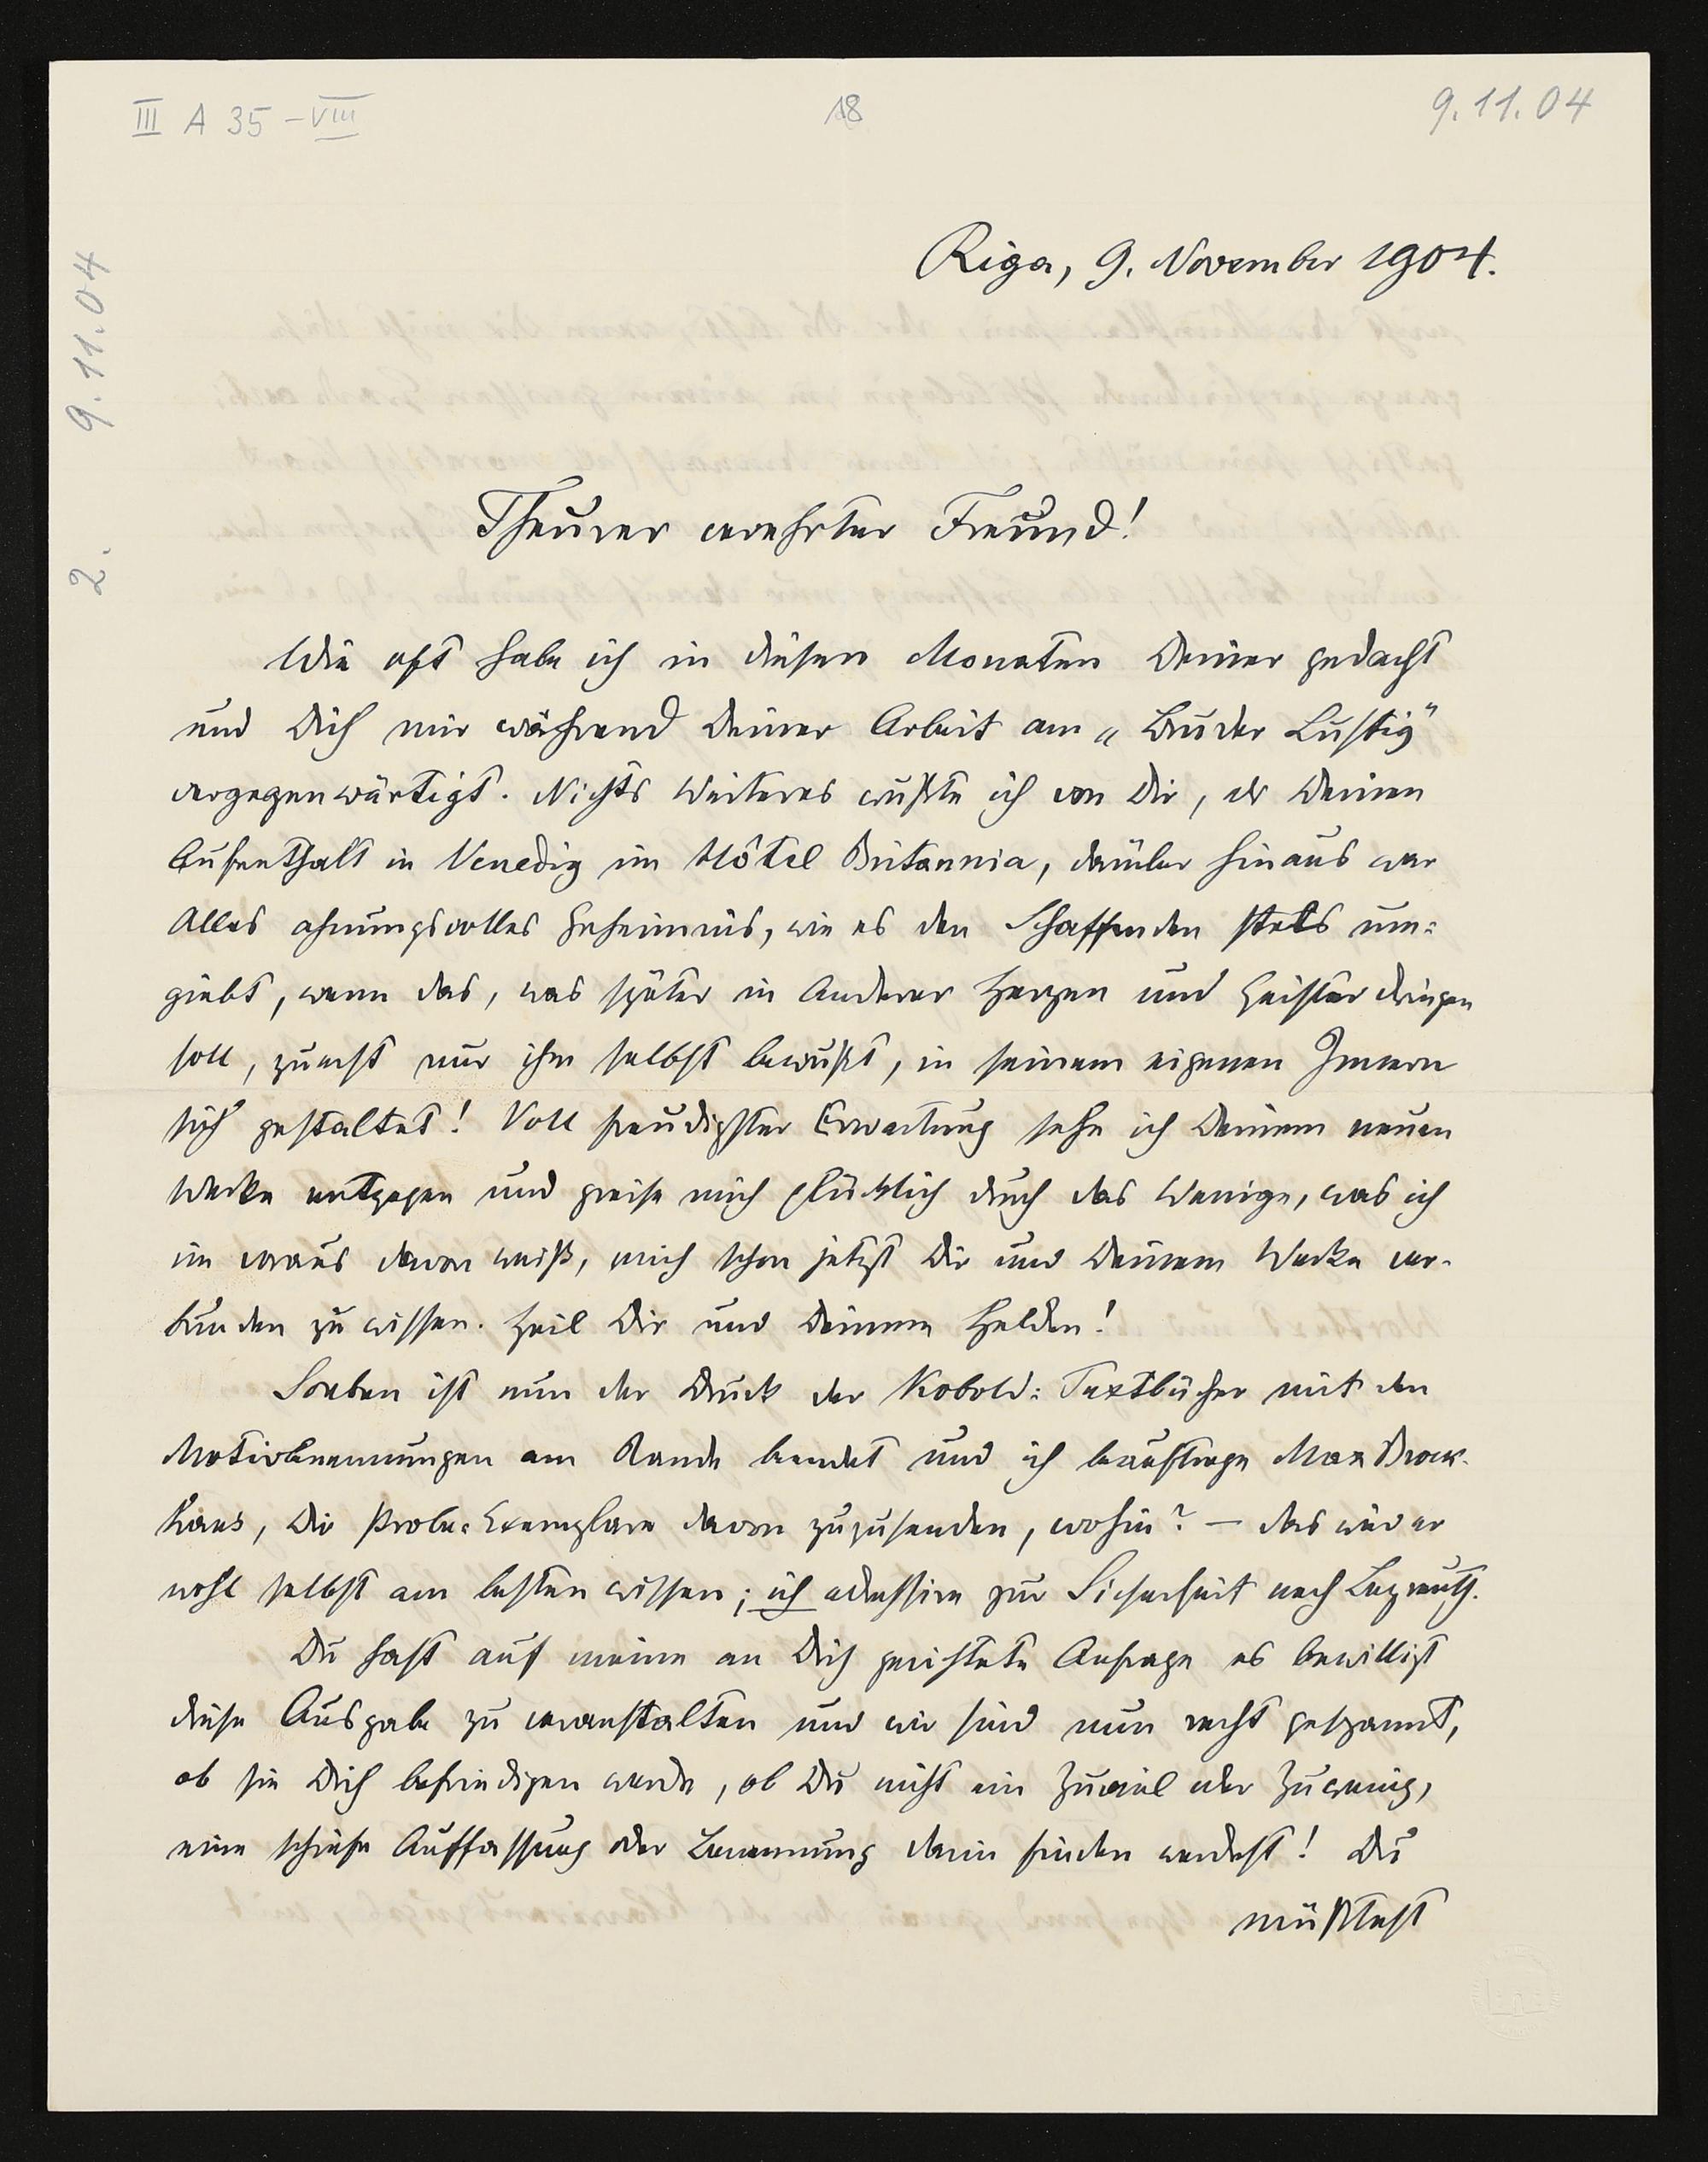 III A 35 - VIII
18
9.11.04
2. 9.11.04
Riga, 9. November 1904.
Theurer verehrter Freund!
Wie oft habe ich in diesen Monaten Deiner gedacht
und Dich mir während Deiner Arbeit am „Bruder Lustig"
vergegenwärtigt. Nichts Weiteres wußte ich von Dir, als Deinen
Aufenthalt in Venedig im Hôtel Britannia, darüber hinaus war
Alles ahnungsvolles Geheimnis, wie es den Schaffenden stets um=
giebt, wenn das, was später in Anderer Herzen und Geister dringen
soll, zuerst nur ihm selbst bewußt, in seinem eigenen Innern
sich gestaltet! Voll freudigster Erwartung sehe ich Deinem neuen
Werke entgegen und preise mich glücklich durch das Wenige, was ich
im voraus davon weiß, mich schon jetzt Dir und Deinem Werke ver-
bunden zu wissen. Heil Dir und Deinem Helden!
Soeben ist nun der Druck der Kobold= Textbücher mit den
Motivbenennungen am Rande beendet und ich beauftrage Max Brock-
haus, Dir Probe=Exemplare davon zuzusenden, wohin? — das wird er
wohl selbst am besten wissen; ich adressire zur Sicherheit nach Bayreuth.
Du hast auf meine an Dich gerichtete Anfrage es bewilligt
diese Ausgabe zu veranstalten und wir sind nun recht gespannt,
ob sie Dich befriedigen werde, ob Du nicht ein Zuviel oder Zuwenig,
eine schiefe Auffassung oder Benennung darin finden werdest! Du
müßtest